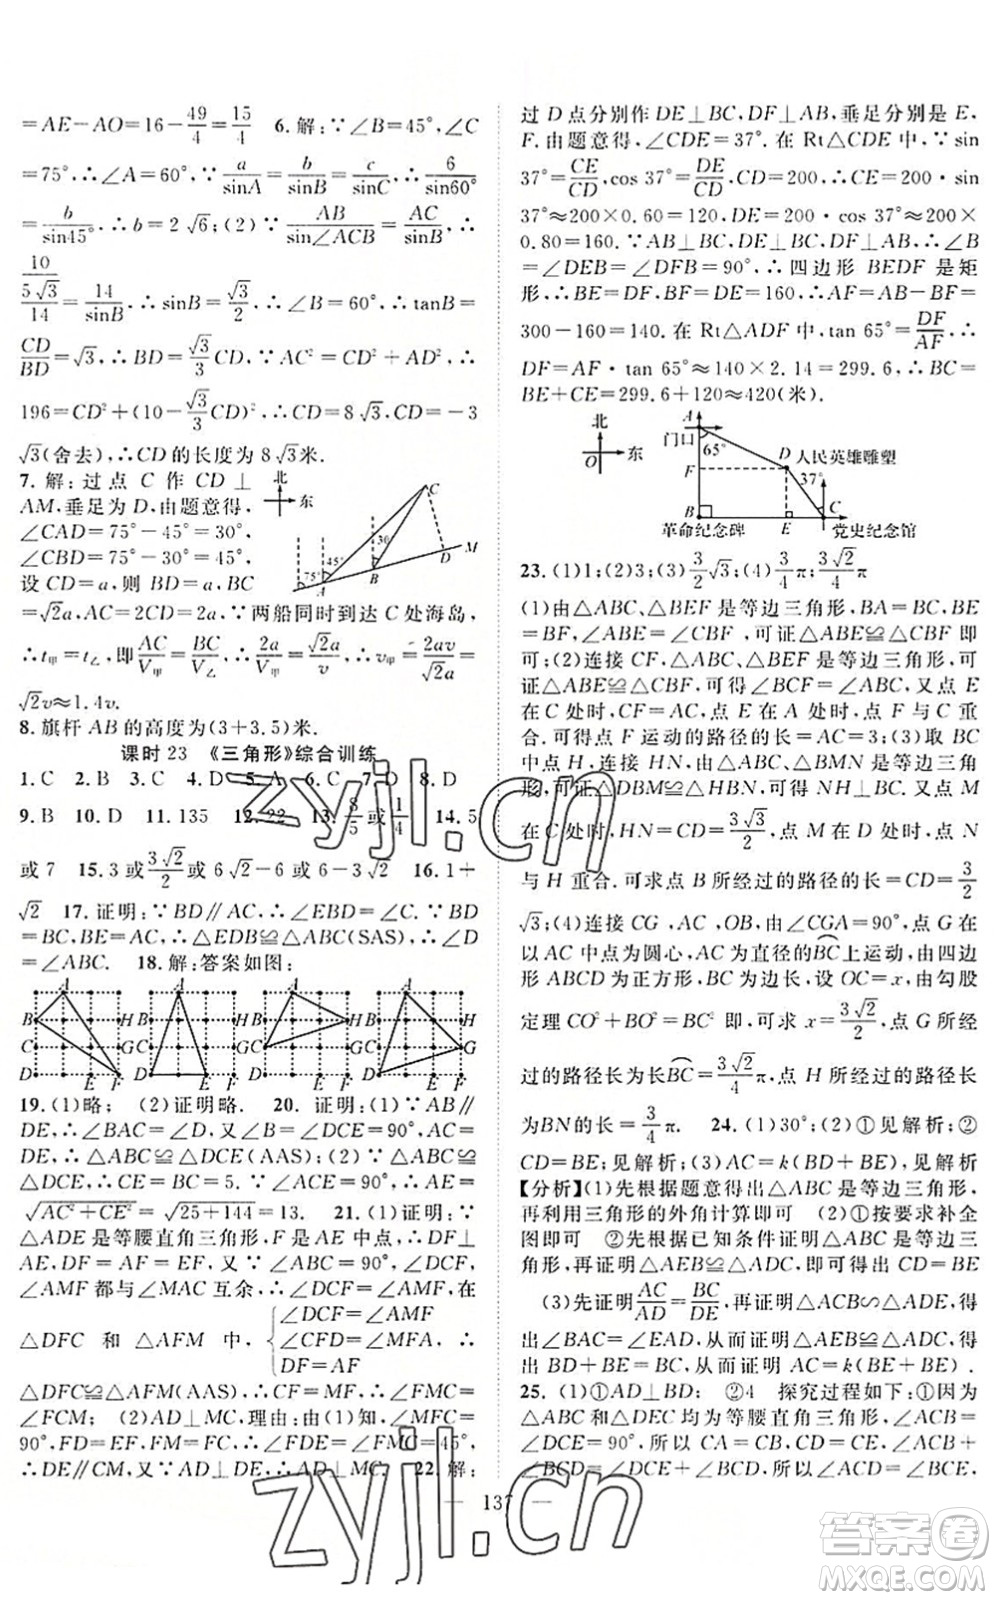 =AE－AO=16－49/4=15/4　6. 解：∵∠B=45°，∠C
=75°，∴∠A=60°，∵a/sinA=b/sinB=c/sinC，∴6/sin60°
=b/sin45°，∴b=2√6；(2)∵AB/sin∠ACB=AC/sinB，∴
10/(5√3/14)=14/sinB，∴sinB=√3/2，∴∠B=60°，∴tanB=
CD/BD=√3，∴BD=√3/3CD，∵AC²=CD²+AD²，∴
196=CD²+(10－√3/3CD)²，∴CD=8√3，CD=－3
√3(舍去)，∴CD的长度为8√3米.
7. 解：过点 C 作 CD⊥
AM，垂足为D，由题意得，
∠CAD=75°－45°=30°，
∠CBD=75°－30°=45°，
设CD=a，则 BD=a，BC
=√2a，AC=2CD=2a，∵两船同时到达C处海岛，
∴t甲=t乙，即AC/V甲=BC/V乙，∴2a/v甲=√2a/v，∴v甲=2av/√2a=
√2v≈1.4v.
8. 旗杆AB的高度为(3+3.5)米.
北
东
75°
45°
30
A
B
C
D
M
课时23　《三角形》综合训练
1. C　2. B　3. C　4. D　5. A　6. C　7. D　8. D
9. B　10. D　11. 135　12. 22　13. 8/5或1/4　14. 5
或7　15. 3或3√2/2或6√2－6或6－3√2　16. 1+
√2　17. 证明：∵BD∥AC，∴∠EBD=∠C. ∵BD
=BC，BE=AC，∴△EDB≌△ABC(SAS)，∴∠D
=∠ABC.　18. 解：答案如图：
A
B
C
D
E
F
G
H
A
B
C
D
E
F
G
H
A
B
C
D
E
F
G
H
A
B
C
D
E
F
G
H
19. (1)略；　(2)证明略.　20. 证明：(1)∵AB∥
DE，∴∠BAC=∠D，又∵∠B=∠DCE=90°，AC=
DE，∴△ABC≌△DCE(AAS)；(2)∵△ABC≌
△DCE，∴CE=BC=5. ∵∠ACE=90°，∴AE=
√AC²+CE²=√25+144=13.　21. (1)证明：∵
△ADE是等腰直角三角形，F是AE中点，∴DF⊥
AE，DF=AF=EF，又∵∠ABC=90°，∠DCF、
∠AMF 都与∠MAC互余，∴∠DCF=∠AMF，在
△DFC 和 △AFM 中，{∠DCF=∠AMF
∠CFD=∠MFA，∴
DF=AF
△DFC≌△AFM(AAS)，∴CF=MF，∴∠FMC=
∠FCM；　(2)AD⊥MC，理由：由(1)知，∠MFC=
90°，FD=EF，FM=FC，∴∠FDE=∠FMC=45°，
∴DE∥CM，∴AD⊥MC.　22. 解：
过D点分别作DE⊥BC，DF⊥AB，垂足分别是E，
F. 由题意得，∠CDE=37°. 在 Rt△CDE 中，∵sin
37°=CE/CD，cos 37°=DE/CD，CD=200，∴CE=200·sin
37°≈200×0.60=120，DE=200·cos 37°≈200×
0.80=160. ∵AB⊥BC，DE⊥BC，DF⊥AB，∴∠B
=∠DEB=∠DFB=90°，∴四边形 BEDF 是矩
形，∴BE=DF，BF=DE=160，∴AF=AB－BF=
300－160=140. 在 Rt△ADF 中，tan 65°=DF/AF，∴
DF=AF·tan 65°≈140×2.14=299.6，∴BC=
BE+CE=299.6+120≈420(米).
北
O
东
A
门口
65°
F
D
人民英雄雕塑
37°
B
E
C
革命纪念碑
党史纪念馆
23. (1)1；(2)3；(3)3/2√3；(4)3/4π；3√2/4π
(1)由△ABC、△BEF 是等边三角形，BA=BC，BE
=BF，∠ABE=∠CBF，可证△ABE≌△CBF 即
可；(2)连接 CF，△ABC、△BEF 是等边三角形，可
证△ABE≌△CBF，可得∠BCF=∠BAC，又点 E
在C处时，CF=AC，点E在A处时，点F与点C重
合. 可得F运动的路径的长=AC=3；(3)取BC
中点H，连接 HN，可得△HBC 是等边三角形，
可证△DBM≌△HBN，可得HN⊥BC，又点M
在C处时，HN=CD=3√3/2，点M在A处时，点N
与H重合. 可求点B所经过的路径的长=CD=3/2
√3；(4)连接CG，AC，OB，由∠CGA=90°，点G在
以AC中点为圆心，AC为直径的BC上运动，由四边
形ABCD为正方形，BC为边长，设OC=x，由勾股
定理CO²+BO²=BC²即，可求x=3√2/2，点G所经
过的路径长为长BC=3√2/4π，点H所经过的路径长
为BN的长=3/4π.　24. (1)30°；(2)①见解析；②
CD=BE；见解析；(3)AC=k(BD+BE)，见解析
【分析】(1)先根据题意得出△ABC 是等边三角形，
再利用三角形的外角计算即可　(2)①按要求补全
图即可　②先根据已知条件证明△ABC是等边三角
形，再证明△AEB≌△ADC，即可得出CD=BE
(3)先证明AC/AD=BC/DE，再证明△ACB∽△ADE，得
出∠BAC=∠EAD，从而证明△AEB≌△ABD，得
出BD+BE=DE，从而证明AC=k(BD+BE).
25. (1)①AD⊥BD；　②4　探究过程如下：①因为
△ABC和△DEC均为等腰直角三角形，∠ACB=
∠DCE=90°，所以 CA=CB，CD=CE，∠ACB+
∠BCD=∠DCE+∠BCD，所以∠ACD=∠BCE，
137
zyjl.cn
zyjl.cn
答案圈
MXQE.COM